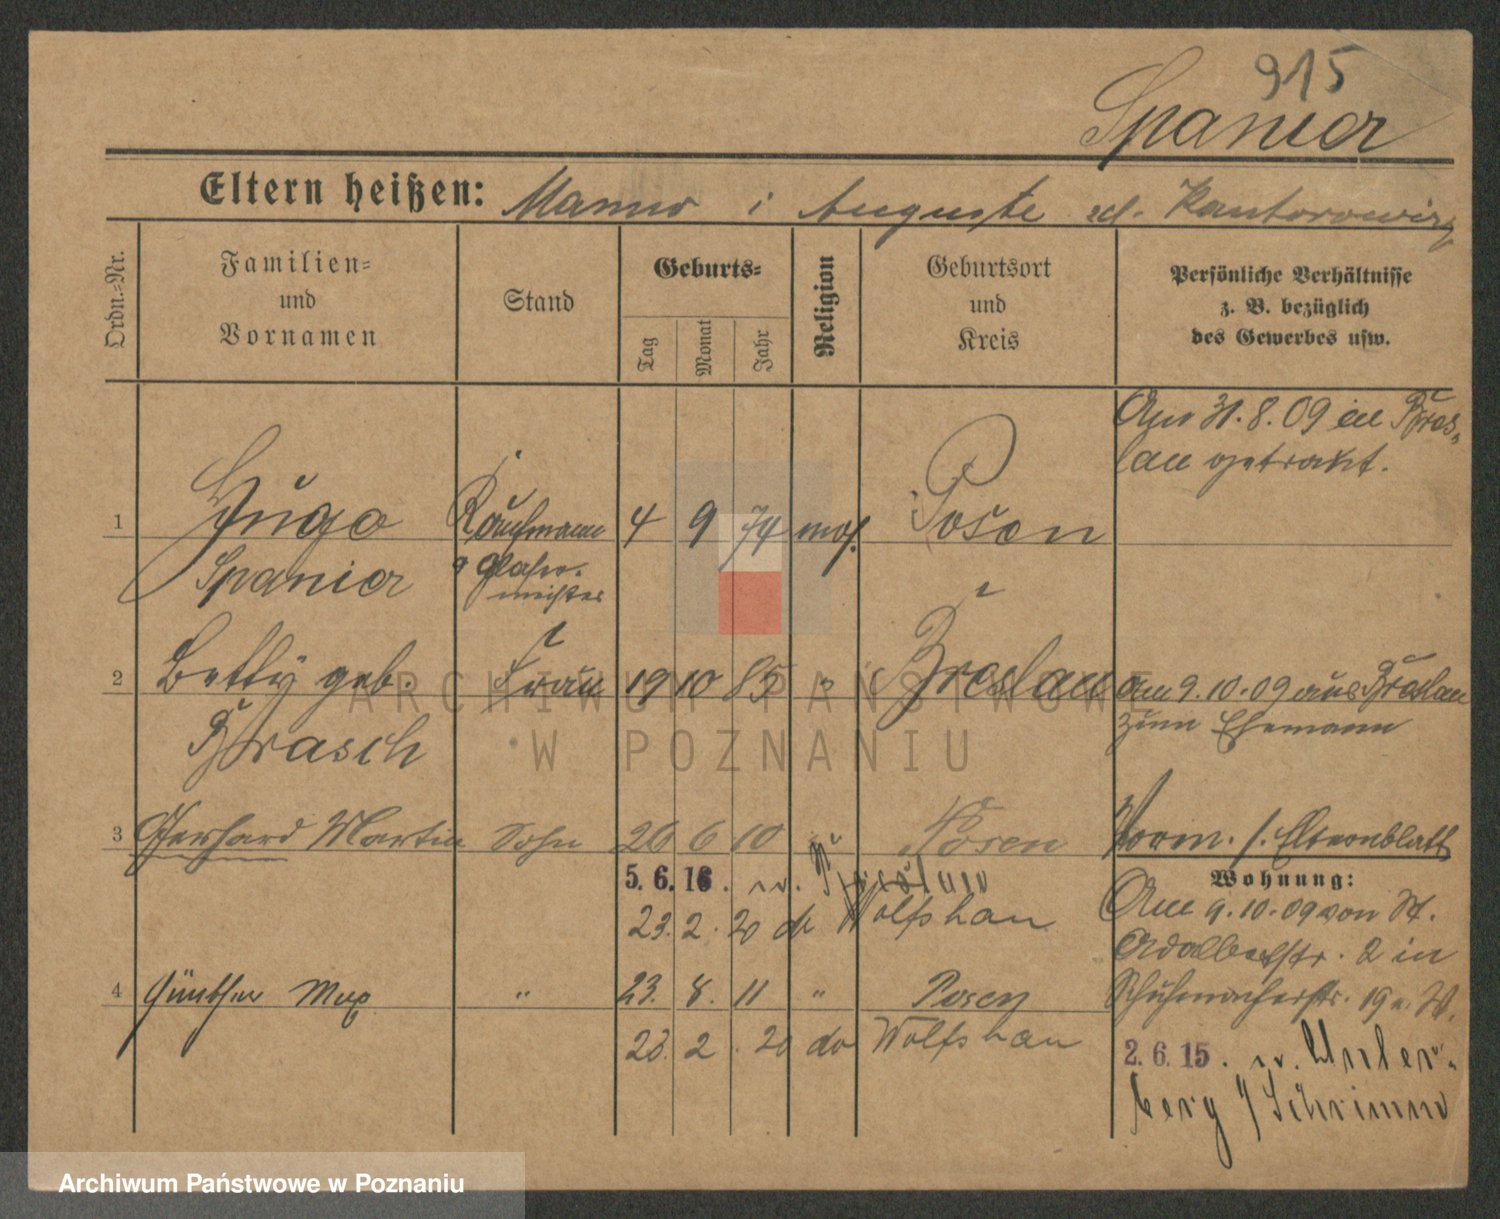 915
Spanier
Eltern heißen: Manno i Auguste Kantorowicz
Ordn.-Nr.
Familien=
und
Vornamen
Stand
Geburts=
Tag
Monat
Jahr
Religion
Geburtsort
und
Kreis
Persönliche Verhältnisse
z. B. bezüglich
des Gewerbes usw.
Am 31.8.09 in Bres-
lau getraut.
1 Hugo Kaufmann 4 9 74 mos. Posen
Spanier Glaser-
meister
2 Betty geb. Frau 19 10 85 " Breslau am 9.10.09 aus Breslau
Brasch zum Ehemann
3 Gerhard Martin Sohn 26 6 10 Posen Vorm. s. Elternblatt
5.6.16. n. Breslau
Wohnung:
23. 2. 20 do Wolfshan
Am 9.10.09 von St.
Adalbertstr. 2 in
4 Günther Max " 23. 8. 11 " Posen Schuhmacherstr. 19 n. W.
23. 2. 20 do Wolfshan
2.6.15. n. Unter-
berg / Schrimm
ARCHIWUM PAŃSTWOWE
W POZNANIU
Archiwum Państwowe w Poznaniu